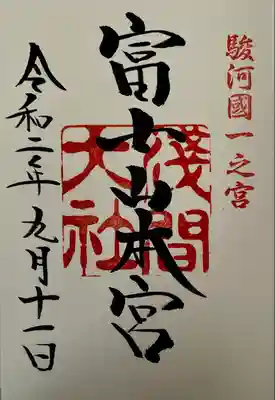 駿河國一之宮
富士山本宮
淺間大社
令和二年九月十一日